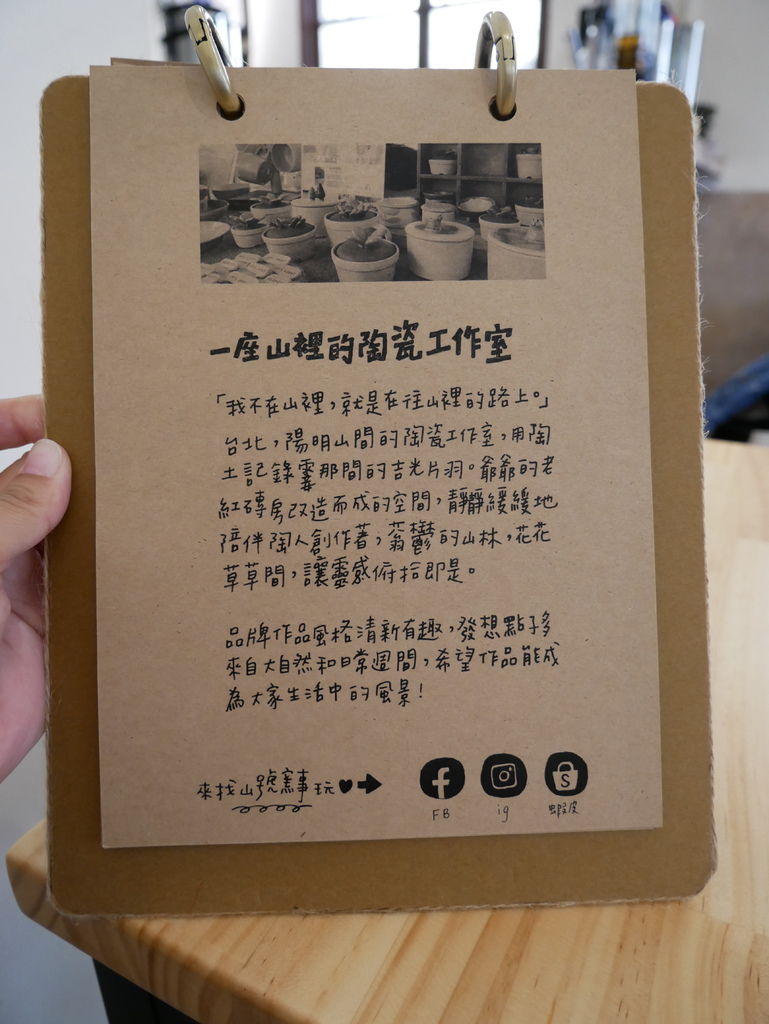 一座山裡的陶瓷工作室
「我不在山裡,就是在往山裡的路上。」
台北,陽明山間的陶瓷工作室,用陶
土記錄霎那間的吉光片羽。爺爺的老
紅磚房改造而成的空間,靜靜緩緩地
陪伴陶人創作著,蓊鬱的山林,花花
草草間,讓靈感俯拾即是。
品牌作品風格清新有趣,發想點子多
來自大自然和日常週間,希望作品能成
為大家生活中的風景!
來找山號窯事玩
FB
ig
蝦皮